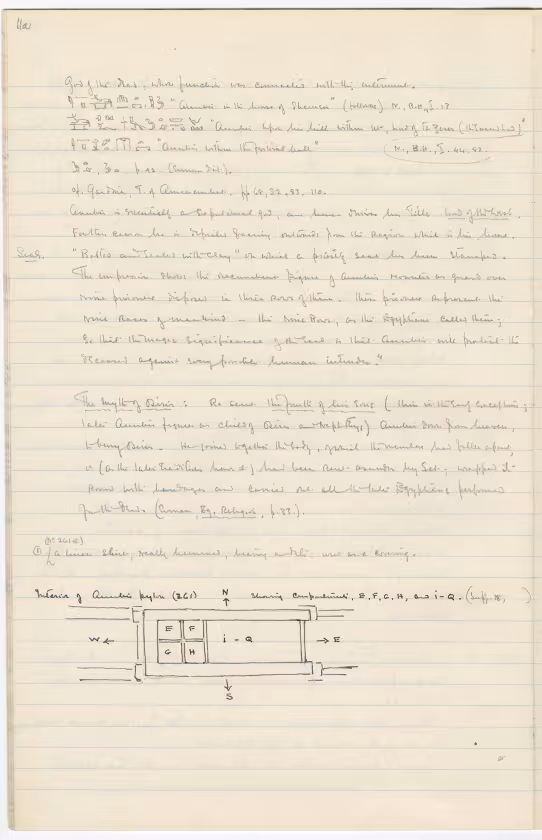 11a
God of the dead, whose function was connected with the interment.
"Anubis in the house of Shemsu" (followers) N., B.H., I. 18
"Anubis upon his hill within Ut, Lord of Ta Zeser (the sacred land)"
"Anubis within the funeral hall" N., B.H., I. 44, 83.
p.
cf. Gardiner, T. of Amenemhet. pp 68, 82, 83, 110.
Anubis is essentially a Sepulchral god, and hence derives his title Lord of the West.
For this reason he is depicted facing outwards from the region which is his home.
Seals. "Bolted and sealed with clay" on which a private seal has been stamped.
The impression shows the recumbent figure of Anubis mounted as guard over
nine prisoners disposed in three rows of three. These prisoners represent the
nine races of mankind — the Nine Bows, as the Egyptians called them;
So that the magic significance of the seal is that Anubis will protect the
deceased against every possible human intruder."
The myth of Osiris: Re sent the fourth of his sons (this is the early conception;
later Anubis figures as child of Osiris and Nephthys) Anubis down from heaven,
to bury Osiris. He joined together the body, of which the members had fallen apart,
or (as the later tradition has it) had been torn asunder by Set; wrapped it
round with bandages and carried out all the later Egyptians performed
for the dead. (Erman, Eg. Religion, p. 33.).
(N: 261a)
① a linen shirt, neatly hemmed, bearing ink date, worn as a covering.
Interior of Anubis pylon (261) N showing compartments, E, F, G, H, and i-Q. (
E F
W i - Q E
G H
S